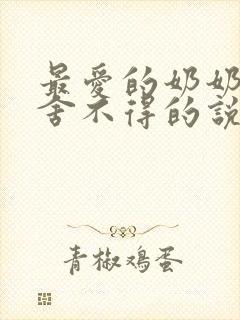 最愛的奶奶
舍不得的説
青椒鸡蛋